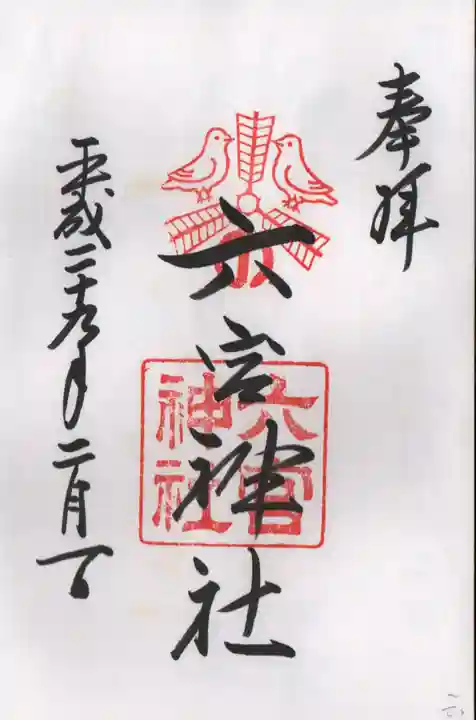 奉拝
六宮神社
六宮
神社
平成二十九年二月